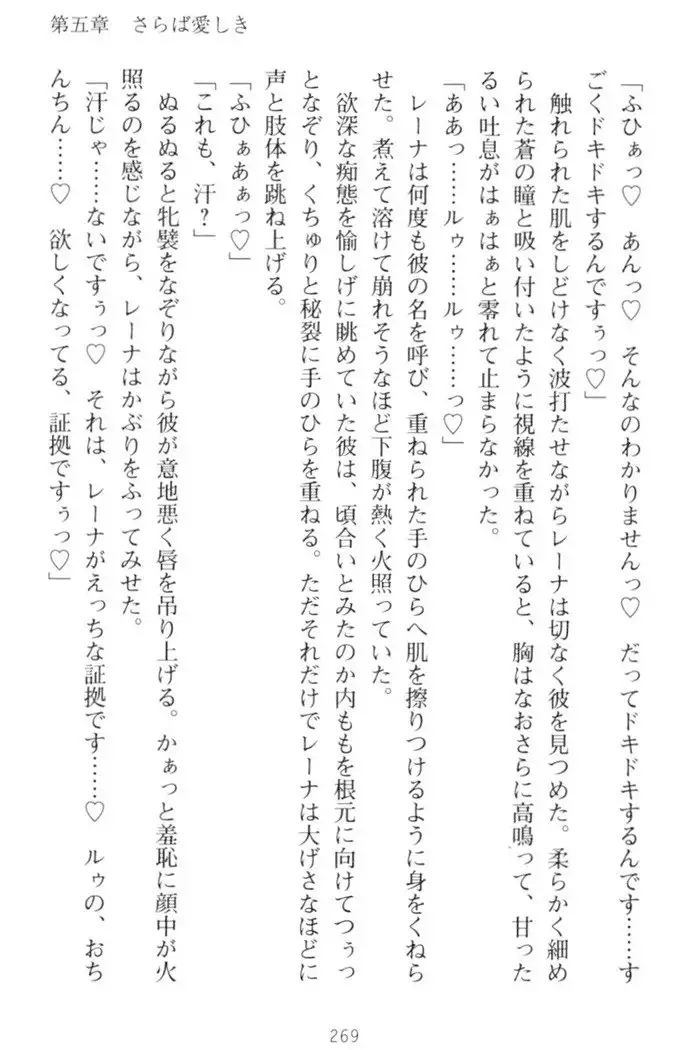 第五章　さらば愛しき
「ふひぁっ♡　あんっ♡　そんなのわかりませんっ♡　だってドキドキするんです……す
ごくドキドキするんですぅっ♡」
触れられた肌をしどけなく波打たせながらレーナは切なく彼を見つめた。柔らかく細め
られた蒼の瞳と吸い付いたように視線を重ねていると、胸はなおさらに高鳴って、甘った
るい吐息がはぁはぁと零れて止まらなかった。
「ああっ……ルゥ……ルゥ……っ♡」
レーナは何度も彼の名を呼び、重ねられた手のひらへ肌を擦りつけるように身をくねら
せた。煮えて溶けて崩れそうなほど下腹が熱く火照っていた。
欲深な痴態を愉しげに眺めていた彼は、頃合いとみたのか内ももを根元に向けてつぅっ
となぞり、くちゅりと秘裂に手のひらを重ねる。ただそれだけでレーナは大げさなほどに
声と肢体を跳ね上げる。
「ふひぁあぁっ♡」
「これも、汗？」
ぬるぬると牝襞をなぞりながら彼が意地悪く唇を吊り上げる。かぁっと羞恥に顔中が火
照るのを感じながら、レーナはかぶりをふってみせた。
「汗じゃ……ないですぅっ♡　それは、レーナがえっちな証拠です……♡　ルゥの、おち
んちん……♡　欲しくなってる、証拠ですぅっ♡」
269